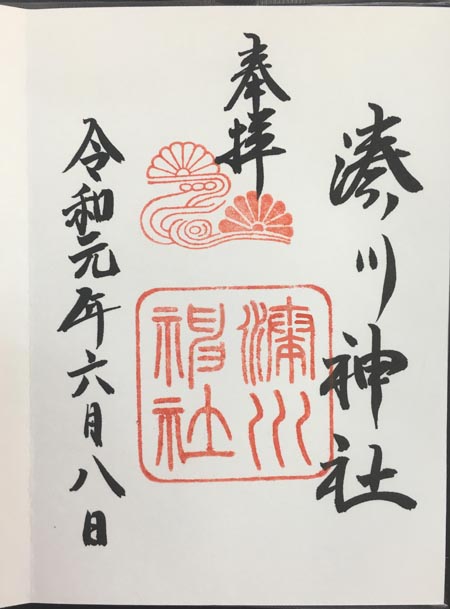 湊川神社
奉拝
湊川
神社
令和元年六月八日